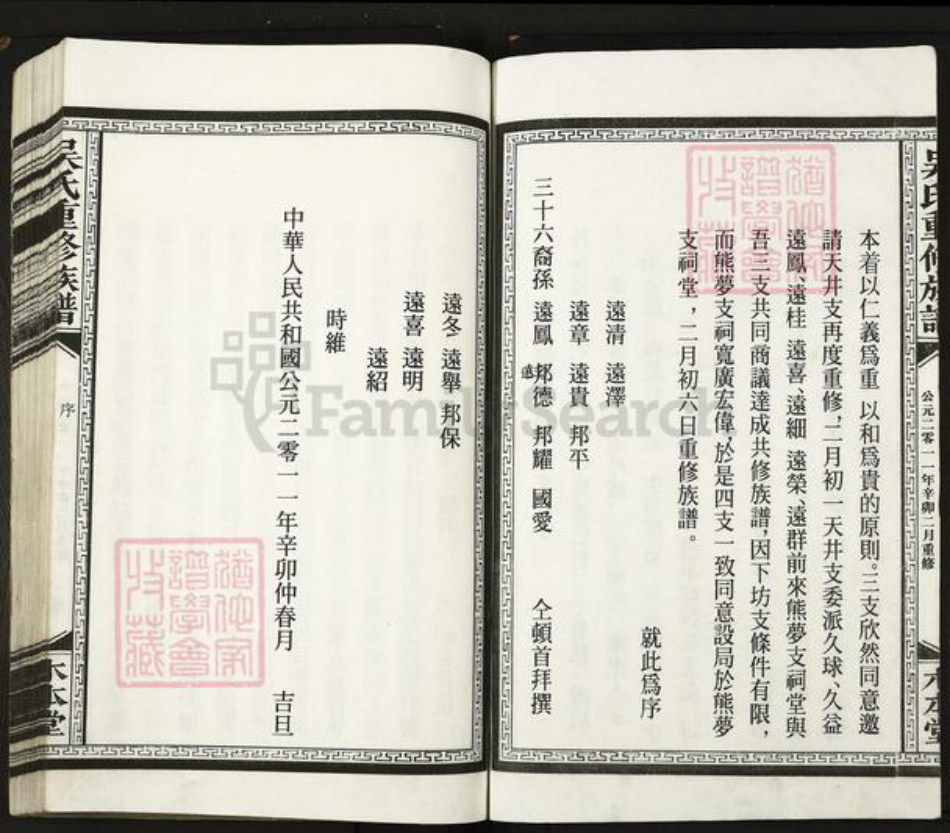 吳氏重修族譜
公元二零一一年辛卯二月重修
木本堂
本着以仁義爲重 以和爲貴的原則。三支欣然同意邀
請天井支再度重修，二月初一天井支委派久球、久益
遠鳳、遠桂 遠喜、遠細 遠榮、遠群前來熊夢支祠堂與
吾三支共同商議達成共修族譜，因下坊支條件有限，
而熊夢支祠寬廣宏偉，於是四支一致同意設局於熊夢
支祠堂，二月初六日重修族譜。
就此爲序
遠清 遠澤
遠章 遠貴 邦平
三十六裔孫 遠鳳 邦德 邦耀 國愛 仝頓首拜撰
遠冬 遠舉 邦保
遠喜 遠明
遠紹
時維
中華人民共和國公元二零一一年辛卯仲春月 吉旦
吳氏重修族譜
序
木本堂
譜學會
收藏
譜學會
收藏
FamilySearch